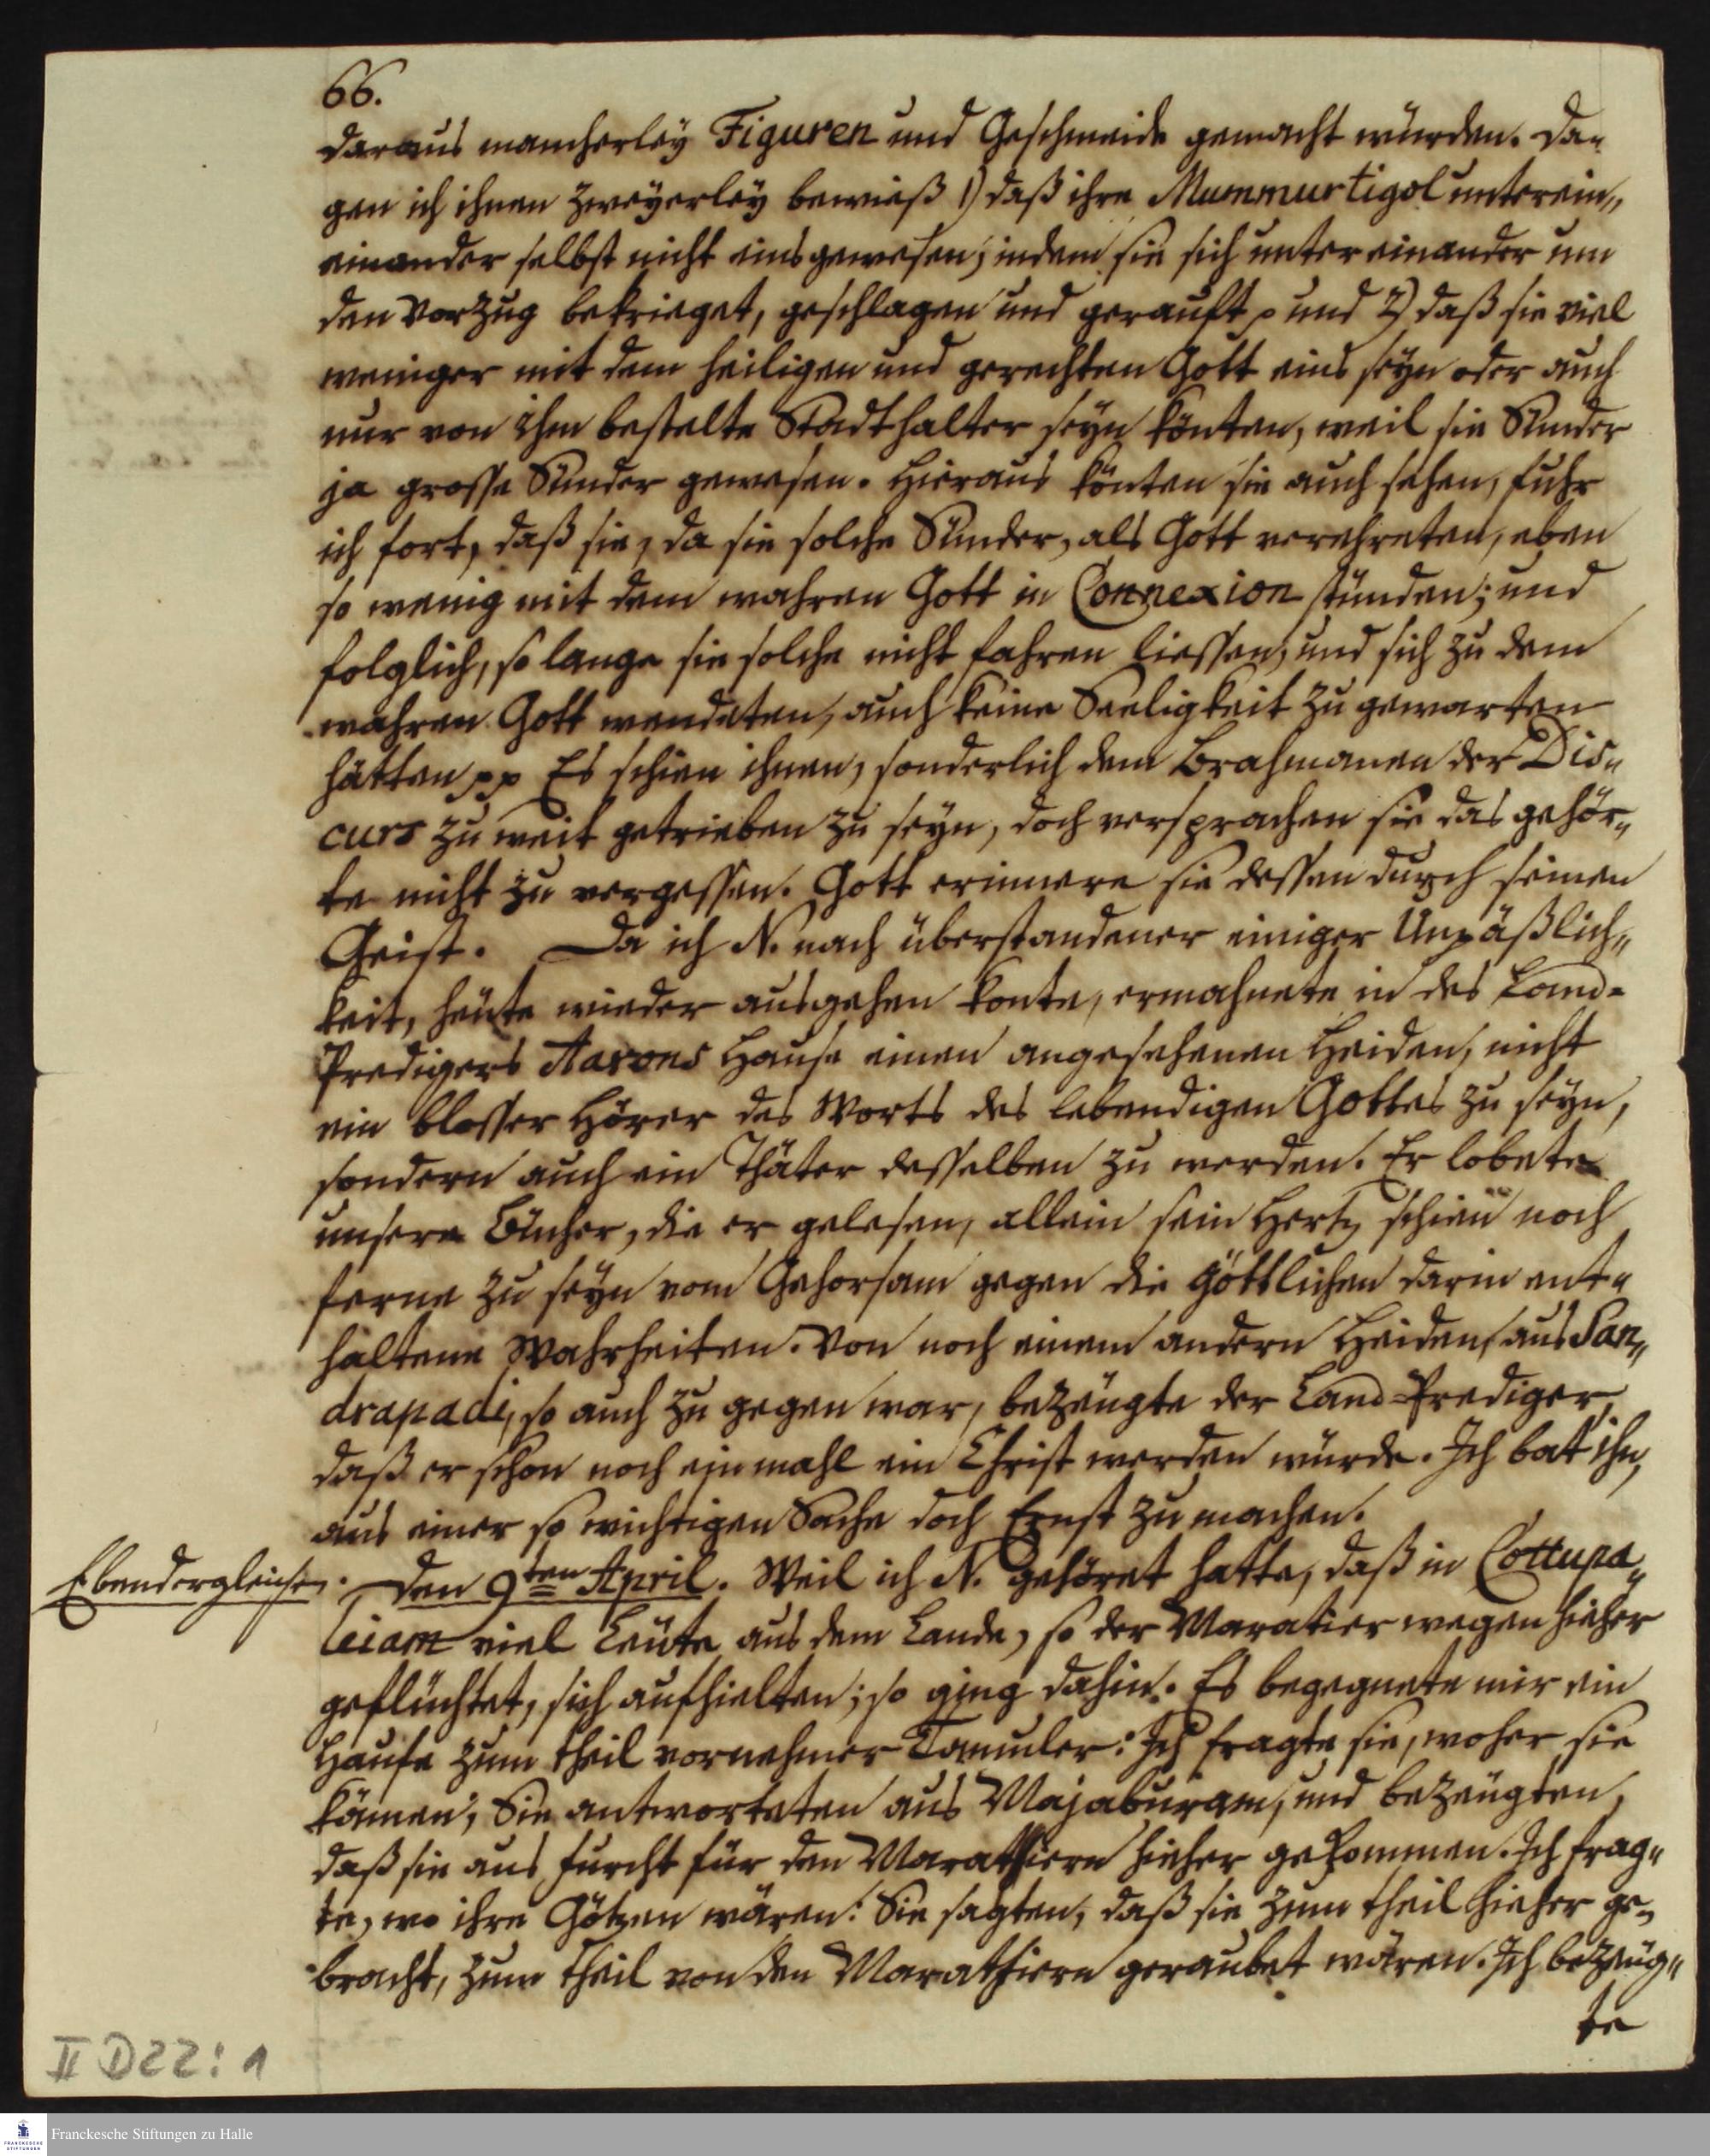 66.
daraus mancherley Figuren und Geschmeide gemacht würden. Da„
gen ich ihnen zweyerley bewieß 1) daß ihre Mummurtigöl unterein„
einander selbst nicht eins gewesen; indem sie sich unter einander um
den Vorzug bekrieget, geschlagen und gerauft p und 2) daß sie viel
weniger mit dem heiligen und gerechten Gott eins seyn oder auch
nur von ihm bestelte Stadthalter seyn könten, weil sie Sünder
ja grosse Sünder gewesen. Hieraus könten sie auch sehen, fuhr
ich fort, daß sie, da sie solche Sünder, als Gott verehreten, eben
so wenig mit dem wahren Gott in Connexion stünden; und
folglich, so lange sie solche nicht fahren liessen, und sich zu dem
wahren Gott wendeten, auch keine Seeligkeit zu gewarten
hätten pp Es schien ihnen, sonderlich dem Brahmanen der Dis„
curs zu weit getrieben zu seyn, doch versprachen sie das gehör„
te nicht zu vergessen. Gott erinnere sie dessen durch seinen
Geist. Da ich N. nach überstandener einiger Unpäßlich„
keit, heüte wieder ausgehen konte, ermahnete in des Land-
Predigers Aarons Hause einen angesehenen Heiden, nicht
ein blosser Hörer des Worts des lebendigen Gottes zu seyn,
sondern auch ein Thäter desselben zu werden. Er lobete
unsere Bücher, die er gelesen, allein sein Hertz schien noch
ferne zu seyn vom Gehorsam gegen die göttlichen darin ent„
haltene Wahrheiten. Von noch einem andern Heiden, aus San„
drapadi, so auch zu gegen war, bezeugte der Land-Prediger,
daß er schon noch einmahl ein Christ werden würde. Ich bat ihn,
aus einer so wichtigen Sache doch Ernst zu machen.
Ebendergleichen. Den 9ten April. Weil ich N. gehöret hatte, daß in Cottupa„
leiam viel Leüte aus dem Lande, so der Maratier wegen hieher
geflüchtet, sich aufhielten; so ging dahin. Es begegnete mir ein
Haufe zum theil vornehmer Tamuler: Ich fragte sie, woher sie
kämen; Sie antworteten aus Majaburam, und bezeugten,
daß sie aus Furcht für den Marathiern hieher gekommen. Ich frag„
te, wo ihre Götzen wären: Sie sagten, daß sie zum theil hieher ge„
bracht, zum theil von den Marathiern geraubet wären. Ich bezeug„
te
II D22:1
Franckesche Stiftungen zu Halle